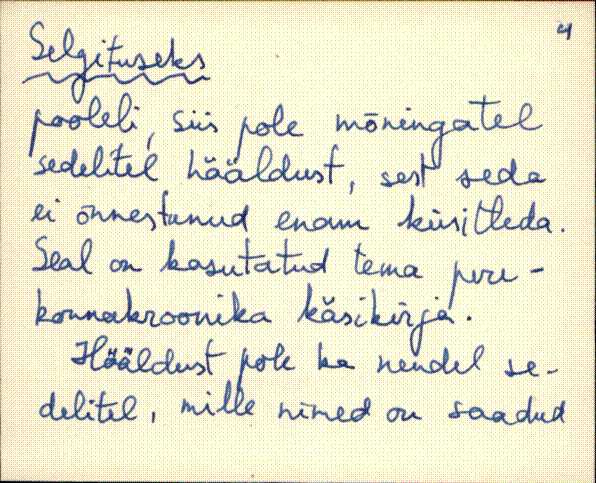 4
Selgituseks
pooleli, siis pole mõningatel
sedelitel hääldust, sest seda
ei õnnestunud enam küsitleda.
Seal on kasutatud tema pere-
konnakroonika käsikirja.
Hääldust pole ka nendel se-
delitel, mille nimed on saadud